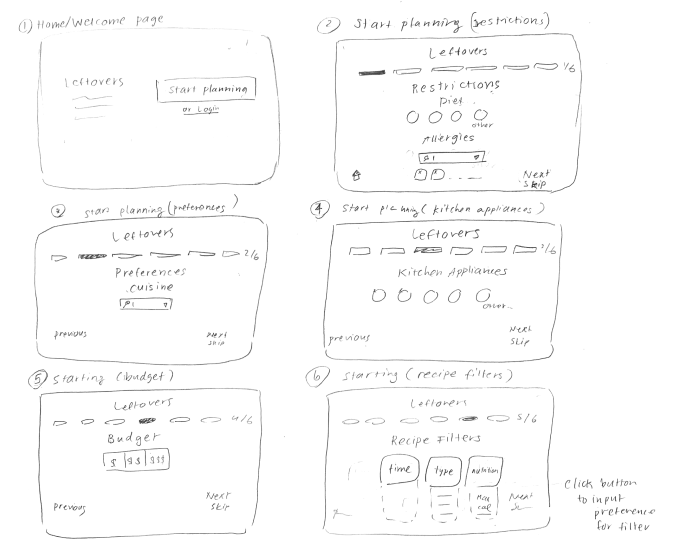 ① Home/Welcome page
Leftovers
Start planning
or Login
② Start planning (restrictions)
Leftovers
1/6
Restrictions
Diet
other
Allergies
Next
Skip
③ start planning (preferences)
Leftovers
2/6
Preferences
cuisine
previous
Next
Skip
④ Start planning (kitchen appliances)
Leftovers
3/6
Kitchen Appliances
other..
previous
Next
Skip
⑤ Starting (budget)
Leftovers
4/6
Budget
$ $$ $$$
previous
Next
Skip
⑥ Starting (recipe filters)
Leftovers
5/6
Recipe Filters
time type nutrition
Max
cal
Next
Click button
to input
preference
for filter